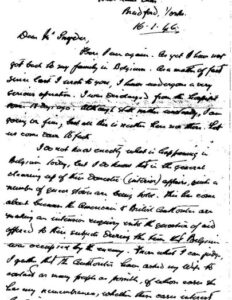 Bradford, Yorks.
16.1.46.
Dear Mr Snyder,
Here I am again. As yet I have not
got back to my family in Belgium. As a matter of fact
since last I wrote to you, I have undergone a very
serious operation. I was discharged from the hospital
some days ago. Although still rather unsteady, I am
going on fine, but all this is neither here nor there. Let
us come down to facts.
I do not know exactly what is happening in
Belgium today, but I do know that in the general
clearing up of their Domestic (interior) affairs, quite a
number of questions are being held. This has come
about because the American & British Authorities are
making an extensive enquiry into the question of aid
offered to their subjects during the time that Belgium
was occupied by the enemy. From what I can judge,
I gather that the Authorities have asked my wife to
contact as many people as possible, of whom
has any remembrance, whether they were